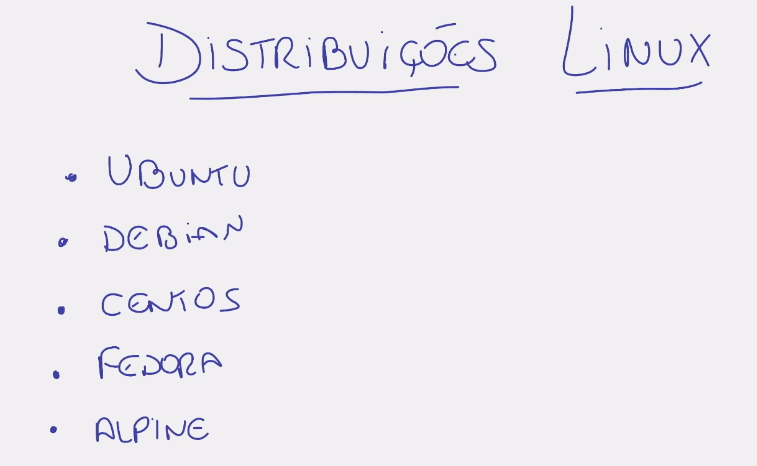 DISTRIBUIÇÕES LINUX
• UBUNTU
• DEBIAN
• CENTOS
• FEDORA
• ALPINE